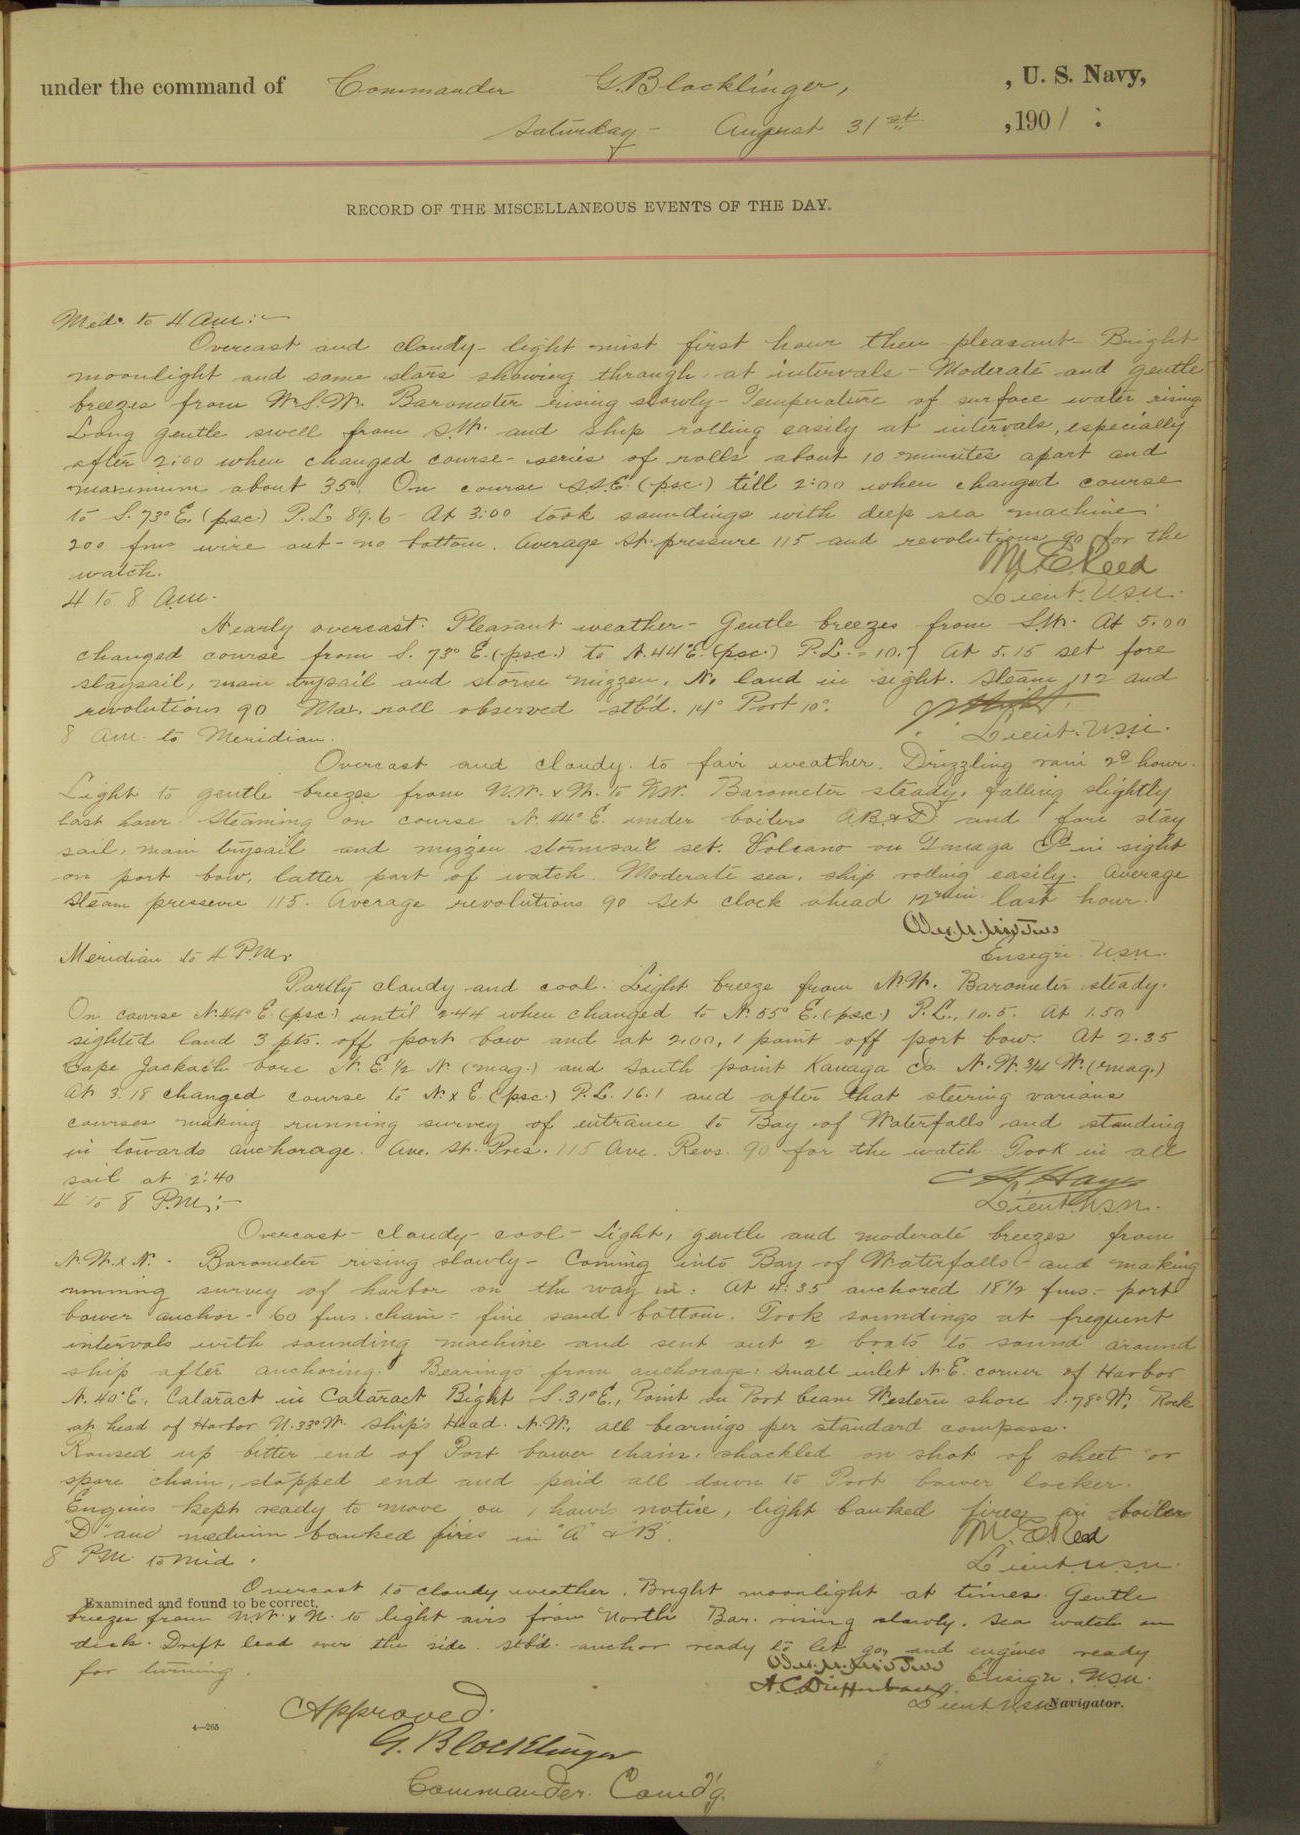 under the command of Commander G. Blocklinger, , U. S. Navy,
Saturday - August 31st , 1901 :
RECORD OF THE MISCELLANEOUS EVENTS OF THE DAY.
Mid. to 4 A.M.:-
Overcast and cloudy - light mist first hour then pleasant - Bright
moonlight and some stars showing through at intervals - Moderate and gentle
breezes from W.S.W. Barometer rising slowly - Temperature of surface water rising
Long gentle swell from S.W. and ship rolling easily at intervals, especially
after 2:00 when changed course - series of rolls about 10 minutes apart and
maximum about 35°. On course S.S.E. (psc.) till 2:00 when changed course
to S. 73° E. (psc) P.L. 89.6 - At 3:00 took soundings with deep sea machine.
200 fms wire out - no bottom. Average st. pressure 115 and revolutions 90 for the
watch. M. E. Reed
Lieut. U.S.N.
4 to 8 A.M.
Nearly overcast. Pleasant weather - Gentle breezes from S.W. At 5.00
changed course from S. 73° E. (p.s.c.) to N. 44° E. (psc.) P.L. = 10.7 At 5.15 set fore
staysail, main trysail and storm mizzen. No land in sight. Steam 112 and
revolutions 90 Max. roll observed stbd. 14° Port 10°.
Lieut. U.S.N.
8 A.M. to Meridian.
Overcast and cloudy to fair weather. Drizzling rain 2d hour.
Light to gentle breezes from N.W. x W. to NW. Barometer steady, falling slightly
last hour. Steaming on course N. 44° E. under boilers A B & D and fore stay
sail, main trysail and mizzen stormsail set. Volcano on Tanaga Id in sight
on port bow, latter part of watch. Moderate sea, ship rolling easily. Average
steam pressure 115. Average revolutions 90 Set clock ahead 12 min last hour.
Ensign U.S.N.
Meridian to 4 P.M.
Partly cloudy and cool. Light breeze from N.W. Barometer steady.
On course N. 44° E. (psc.) until 2.44 when changed to N. 55° E. (psc.) P.L., 10.5. At 1.50
sighted land 3 pts. off port bow and at 2.00, 1 point off port bow. At 2.35
Cape bore N. E. 1/2 N. (mag.) and South point Kanaga Id. N. W. 3/4 W. (mag.)
At 3.18 changed course to N. x E. (psc.) P.L. 16.1 and after that steering various
courses making running survey of entrance to Bay of Waterfalls and standing
in towards anchorage. Ave. St. Pres. 115 Ave. Revs. 90 for the watch Took in all
sail at 2:40
Lieut. U.S.N.
4 to 8 P.M.:-
Overcast - cloudy - cool - Light, gentle and moderate breezes from
N.W. x N. - Barometer rising slowly - Coming into Bay of Waterfalls - and making
running survey of harbor on the way in. At 4:35 anchored 18 1/2 fms. - port
bower anchor - 60 fms. chain - fine sand bottom. Took soundings at frequent
intervals with sounding machine and sent out 2 boats to sound around
ship after anchoring. Bearings from anchorage: small inlet N.E. corner of Harbor
N. 40° E., Cataract in Cataract Bight S. 31° E., Point on Port beam Western shore S. 78° W., Rock
at head of Harbor N. 33° W. Ship's Head. N.W., all bearings per standard compass.
Roused up bitter end of Port bower chain, shackled on shot of sheet or
spare chain, stopped end and paid all down to Port bower locker.
Engines kept ready to move on 1 hour's notice, light banked fires in boiler
"D" and medium banked fires in "A" & "B". M. E. Reed
Lieut. U.S.N.
8 P.M. to Mid.
Overcast to cloudy weather. Bright moonlight at times. Gentle
Examined and found to be correct.
breezes from NW. x N. to light airs from North Bar. rising slowly. Sea watch on
deck. Drift lead over the side. Stbd. anchor ready to let go, and engines ready
for turning. Ensign, U.S.N.
Lieut U.S.N. Navigator.
Approved.
G. Blocklinger
Commander. Comd'g.
4—265